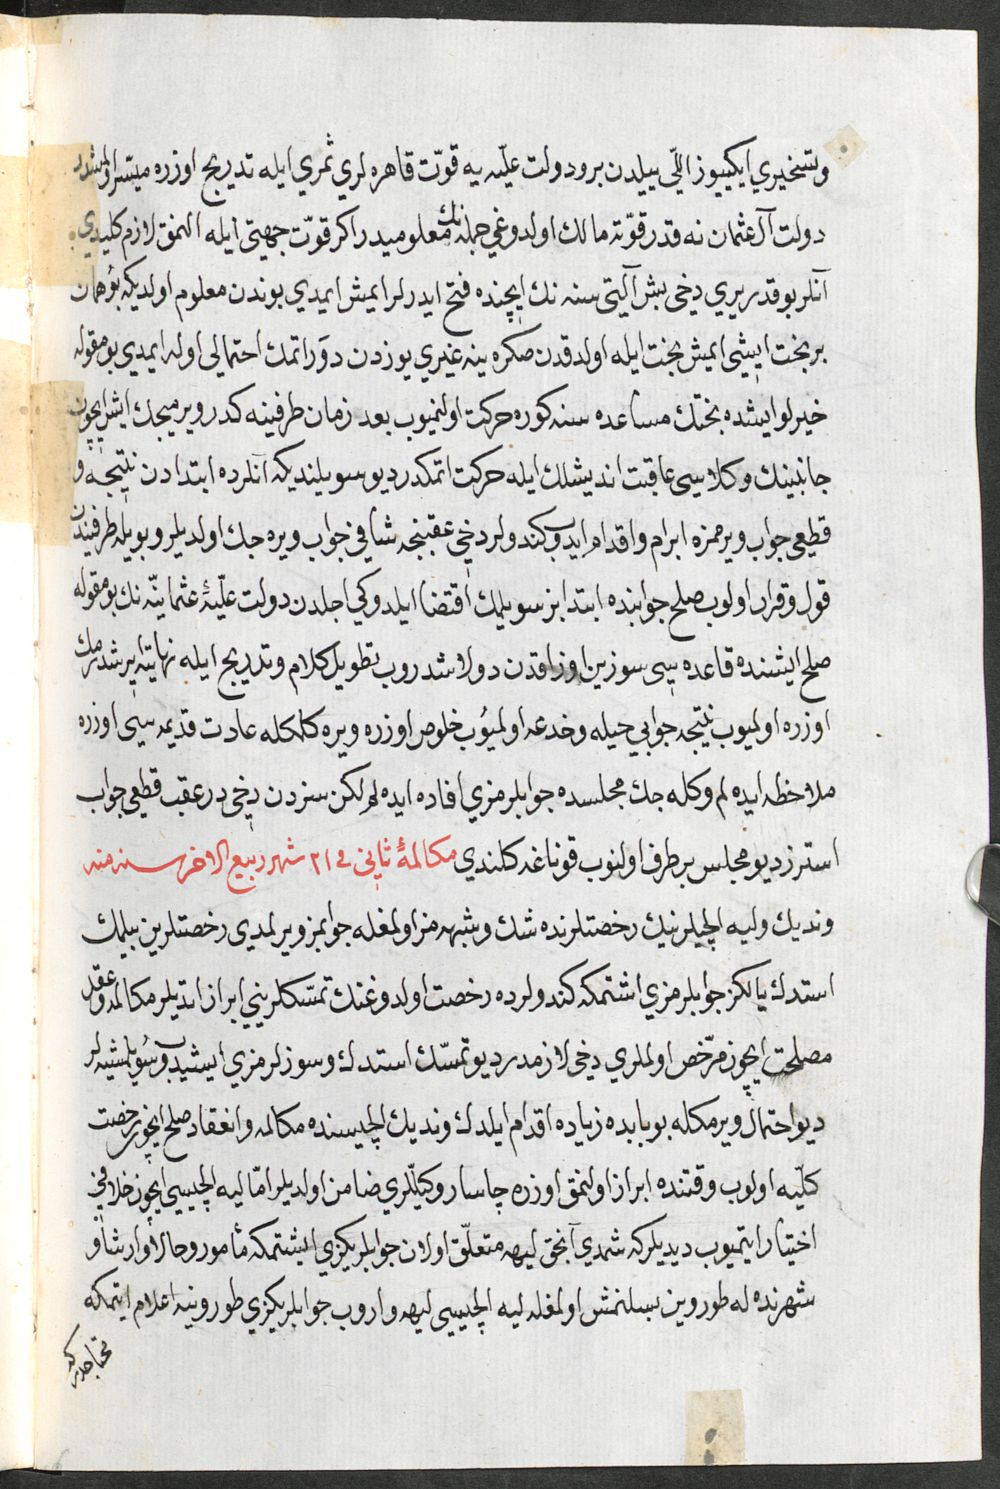 وتسخيري ايكييوز اللّي ييلدن برو دولت عليّه يه قوّت قاهره لري ثمري ايله تدريج اوزره ميسّر اولمشدر
دولت آل عثمان نه قدر قوّته مالك اولدوغي جمله نك معلوميدر اكر قوّت جهتي ايله النمق لازم كليدي
آنلر بو قدر يري دخي بش آلتي سنه نك ايچنده فتح ايدرلر ايمش ايمدي بوندن معلوم اولديكه بو همان
بر بخت ايشي ايمش بخت ايله اولدقدن صكره ينه غيري يوزدن دور اتمك احتمالي اوله ايمدي بو مقوله
خيرلو ايشده بختك مساعده سنه كوره حركت اولنميوب بعد زمان طرفينه كدر ويرميجك ايش ايچون
جانبينك وكلاسي عاقبت انديشلك ايله حركت اتمكدر ديو سويلنديكه آنلرده ابتدادن نتيجه و
قطعي جواب ويرممزه ابرام واقدام ايدوب كندولر دخي عقبنجه شافي جواب ويره جك اولديلر وبويله طرفيندن
قول وقرار اولوب صلح جوابنده ابتدا بز سويلمك اقتضا ايلدوكي اجلدن دولت عليّهٔ عثمانيّه نك بو مقوله
صلح ايشنده قاعده سي سوزين اوزاقدن دولاشدروب تطويل كلام وتدريج ايله نهايته ايرشدرمك
اوزره اولميوب نتيجه جوابي حيله وخدعه اولميوب خلوص اوزره ويره كلمكله عادت قديمه سي اوزره
ملاحظه ايده لم وكله جك مجلسده جوابلرمزي افاده ايده لم لكن سزدن دخي درعقب قطعي جواب
استرز ديو مجلس بر طرف اولنوب قوناغه كلندي مكالمهٔ ثاني في ٢١ شهر ربيع الاخر سنه منه
ونديك وليه ايلچيلرينك رخصتلرنده شك وشبهه مز اولمغله جوابمز ويرلمدي رخصتلرين بيلمك
استدك يالكز جوابلرمزي اشتمكه كندولرده رخصت اولدوغنك تمسّكلريني ابراز اتديلر مكالمه وعقد
مصلحت ايچون مرخّص اولملري دخي لازمدر ديو تمسّك استدك وسوزلرمزي ايشيدوب وسويلشيه لر
ديو احتمال ويرمكله بو بابده زياده اقدام ايلدك ونديك ايلچيسنده مكالمه وانعقاد صلح ايچون رخصت
كليّه اولوب وقتنده ابراز اولنمق اوزره چاسار وكيللري ضامن اولديلر امّا ليه ايلچيسي ايچون خلافني
اختيار ايتميوب ديديلر كه شمدي آنجق ليهه متعلّق اولان جوابلريكزي ايشتمكه مأمور وحالا وارشاو
شهرنده له طوروين بسلنمش اولمغله ليه ايلچيسي ليهه واروب جوابلريكزي طوروينه اعلام ايتمكه
محتاجدر كه